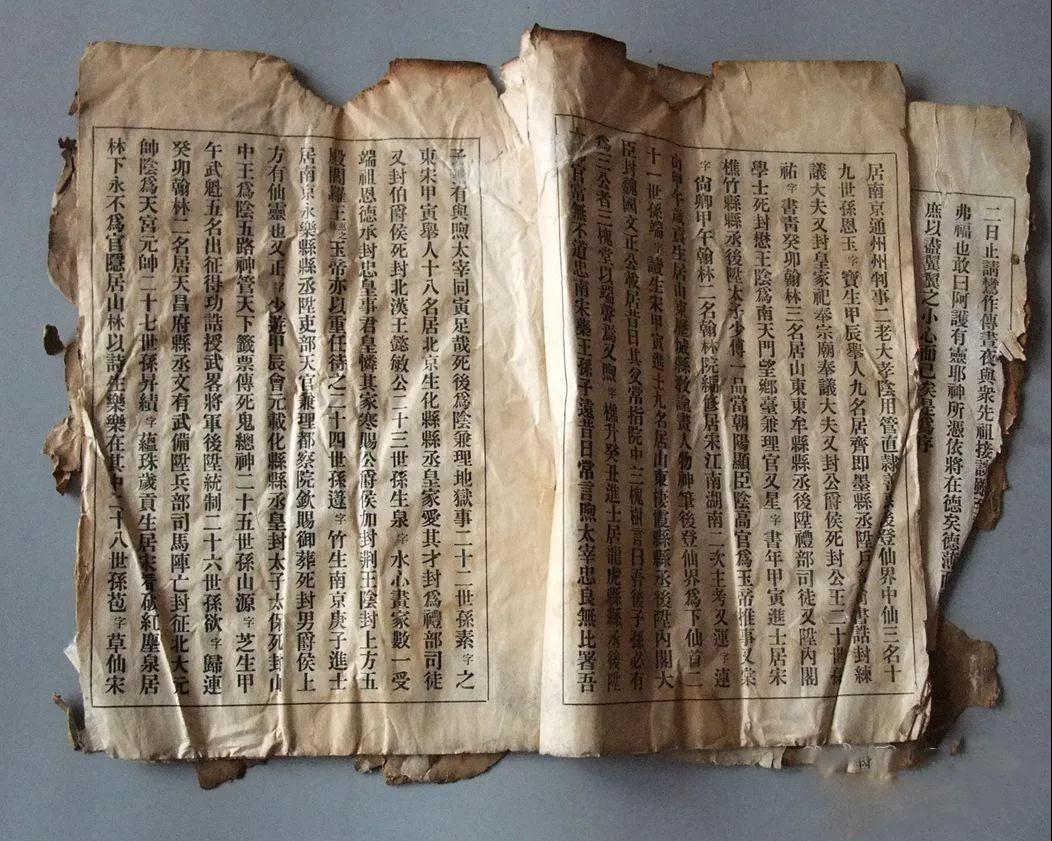 二日止請鸞作傳晝夜與衆先祖接談
弗福也敢曰阿護有靈耶神所憑依將在德矣德
庶以盡翼翼之小心而已矣是爲序
居南京通州州判事二老大孝陰用管直隸 後登仙界中仙三名十
九世孫恩玉字寶生甲辰舉人九名居齊即墨縣丞陞戶 書誥封練
議大夫又封皇家祀奉宗廟奉議大夫又封公爵侯死封公王二十世孫
祐字書青癸卯翰林三名居山東東牟縣縣丞後陞禮部司徒又陞內閣
學士死封懋王陰爲南天門望鄉臺兼理官又星字書年甲寅進士居宋
樵竹縣縣丞後陞太子少傳一品當朝陽顯臣陰高官爲玉帝惟事又棠
字尚卿甲午翰林二名翰林院編修居宋江南湖南二次主考又運字連
山甲午歲貢生居山東歷城縣教諭畫人物神筆後登仙界爲下仙首二
十一世孫端字讀生宋甲寅進士九名居山東棲霞縣縣丞後陞內閣大
臣封魏國文正公載居昔日其父常指院中三槐樹言曰吾後子孫必有
爲三公者三槐堂以端聲焉又煦字樵升癸丑進士居龍虎縣縣丞後陞
官常無不道忠南宋藥王孫子遠昔日常言煦太宰忠良無比署吾
子 有與煦太宰同寅足哉死後爲陰兼理地獄事二十二世孫素字之
東宋甲寅舉人十八名居北京生化縣縣丞皇家愛其才封爲禮部司徒
又封伯爵侯死封北漢王懿敏公二十三世孫生泉字水心畫家數一受
端祖恩德承封忠皇事君皇憐其家寒賜公爵侯加封荆王陰封上方五
殿閻羅王 玉帝亦以重任待之二十四世孫蓬字竹生南京庚子進士
居南京永樂縣縣丞陞吏部天官兼理都察院欽賜御葬死封男爵侯上
方有仙靈也又正字少遊甲辰會元載化縣縣丞皇封太子太保死封山
中王爲陰五路神管天下籤票傳死鬼總神二十五世孫山源字芝生甲
午武魁五名出征得功誥授武畧將軍後陞統制二十六世孫欲字歸連
癸卯翰林二名居天昌府縣丞文有武備陞兵部司馬陣亡封征北大元
帥陰爲天宮元帥二十七世孫昇績字蘊珠歲貢生居宋看破紅塵泉居
林下永不爲官隱居山林以詩生樂樂在其中二十八世孫苞字草仙宋